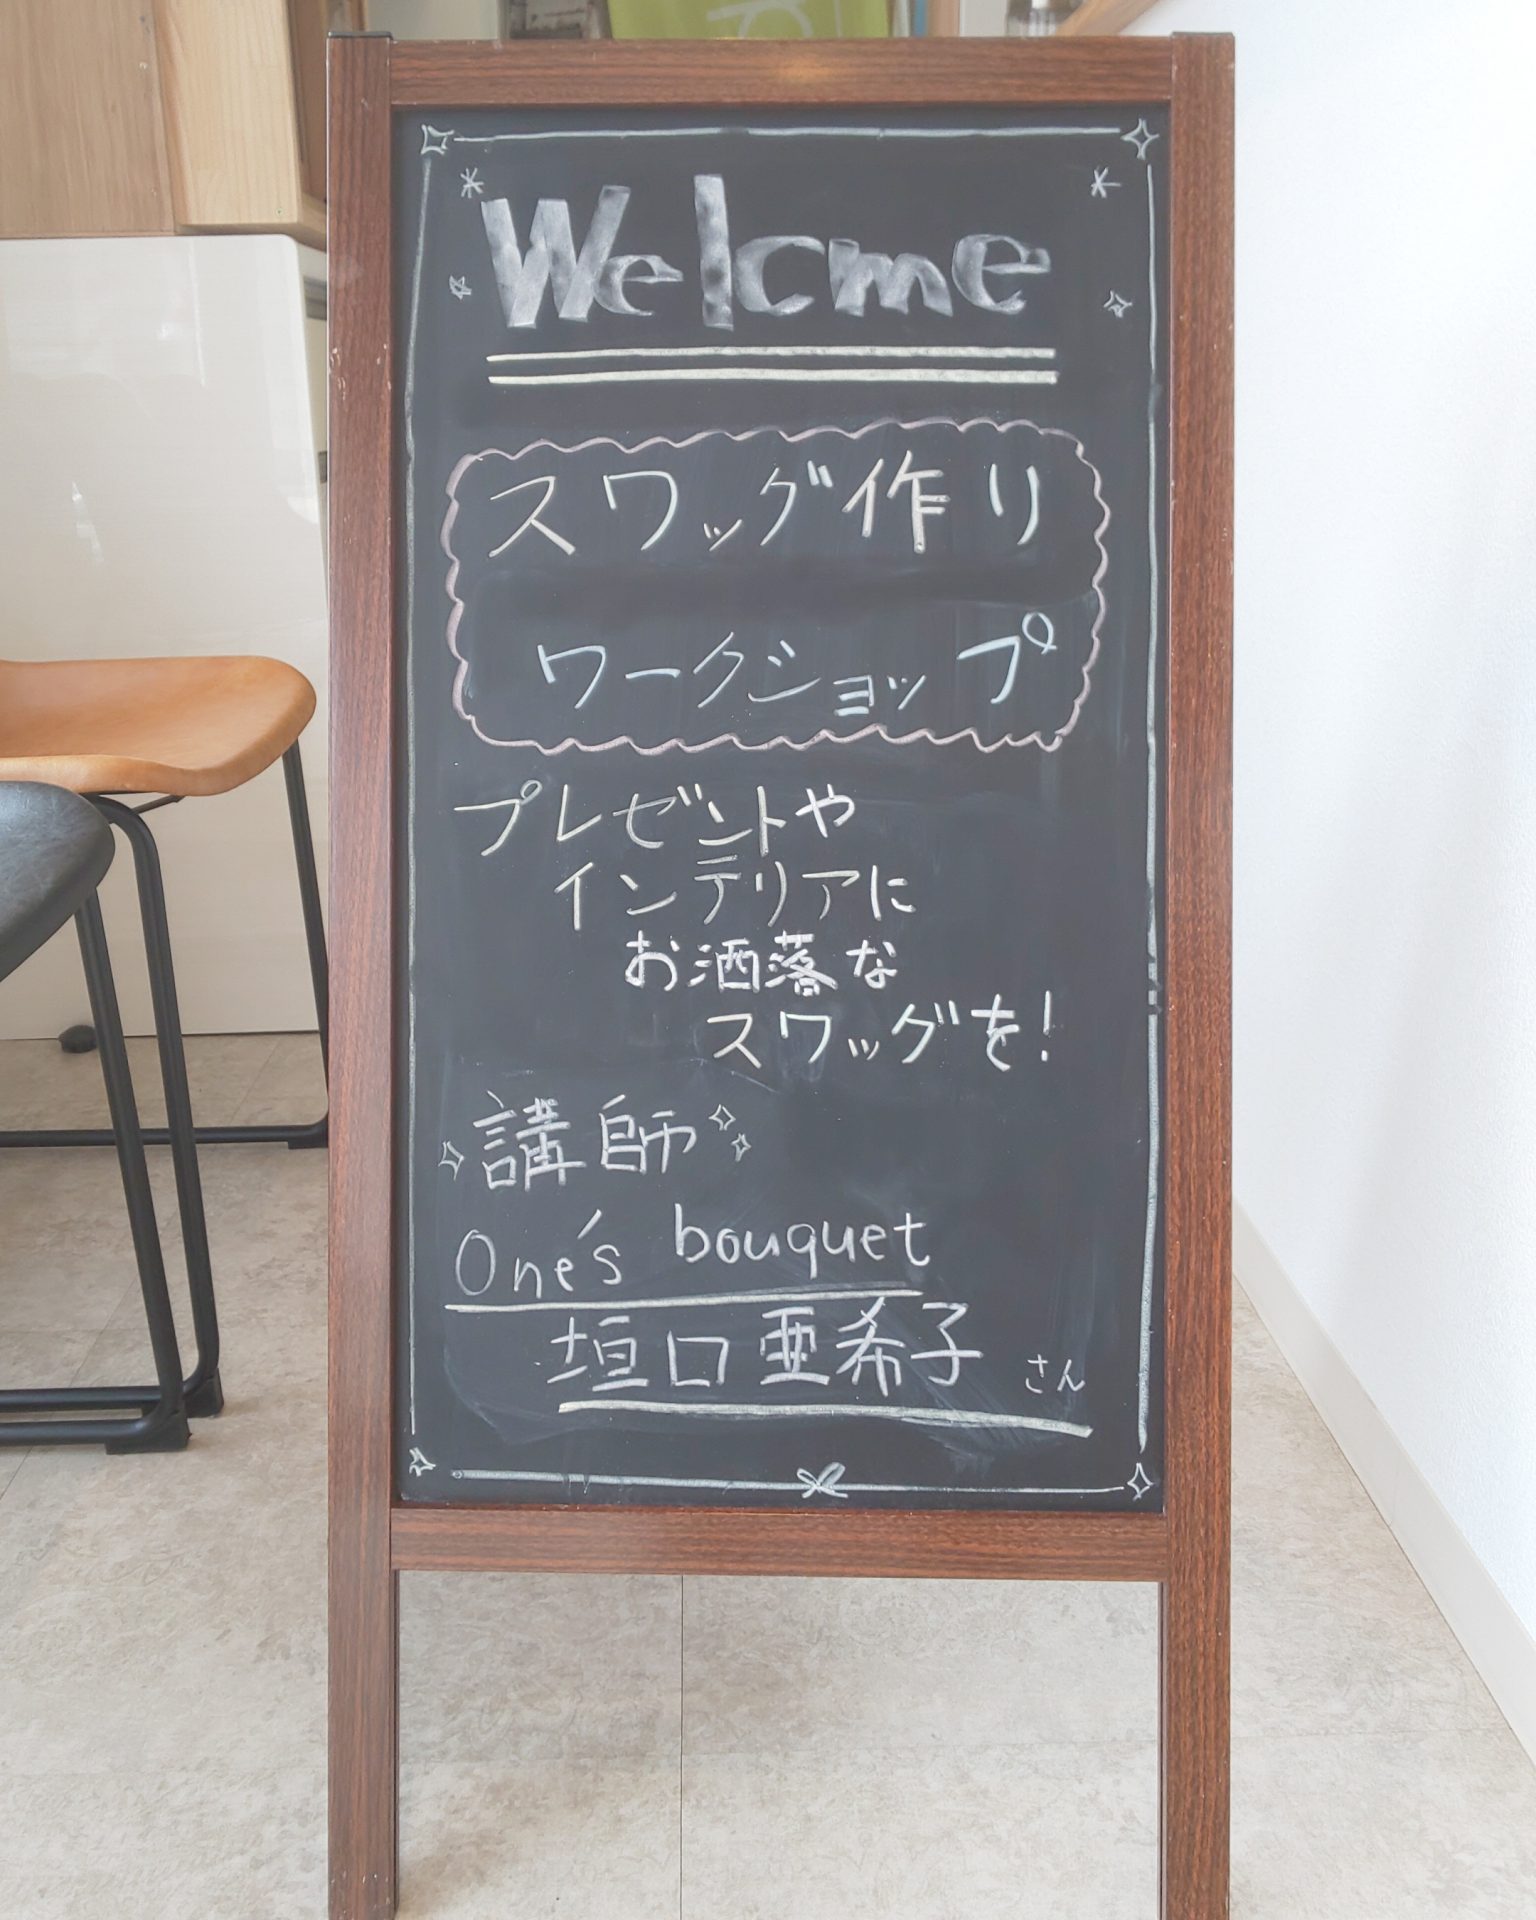 Welcme
スワッグ作り
ワークショップ
プレゼントや
インテリアに
お洒落な
スワッグを!
講師
One's bouquet
垣口亜希子さん